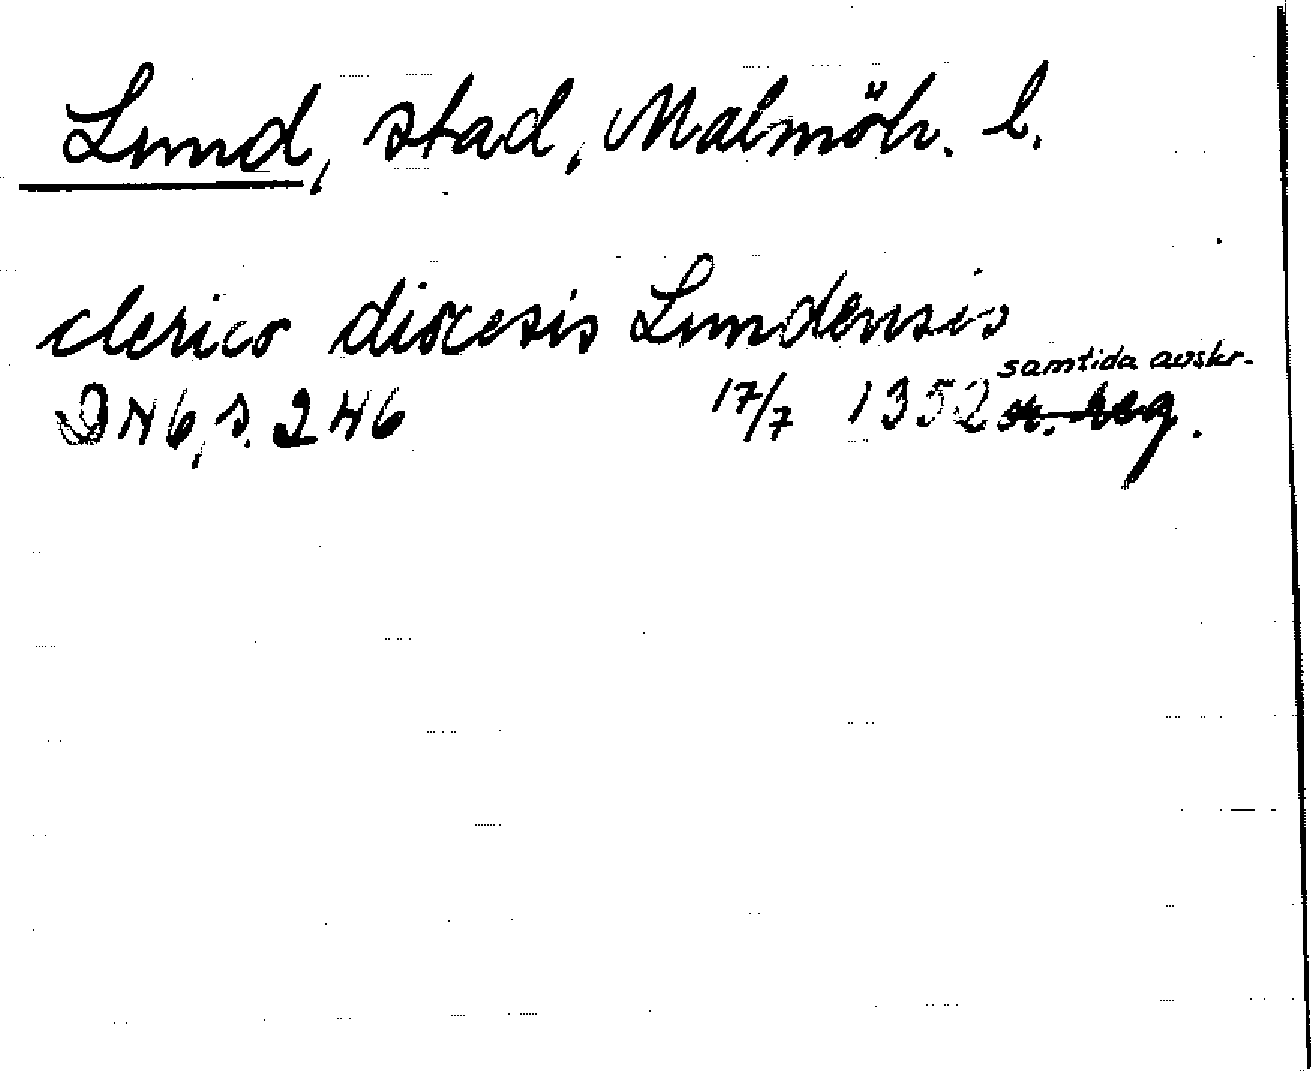 Lund, stad, Malmöh. l.
clerico diocesis Lundensis
samtida avskr.
DN 6, s. 246 17/7 1352 or. reg.